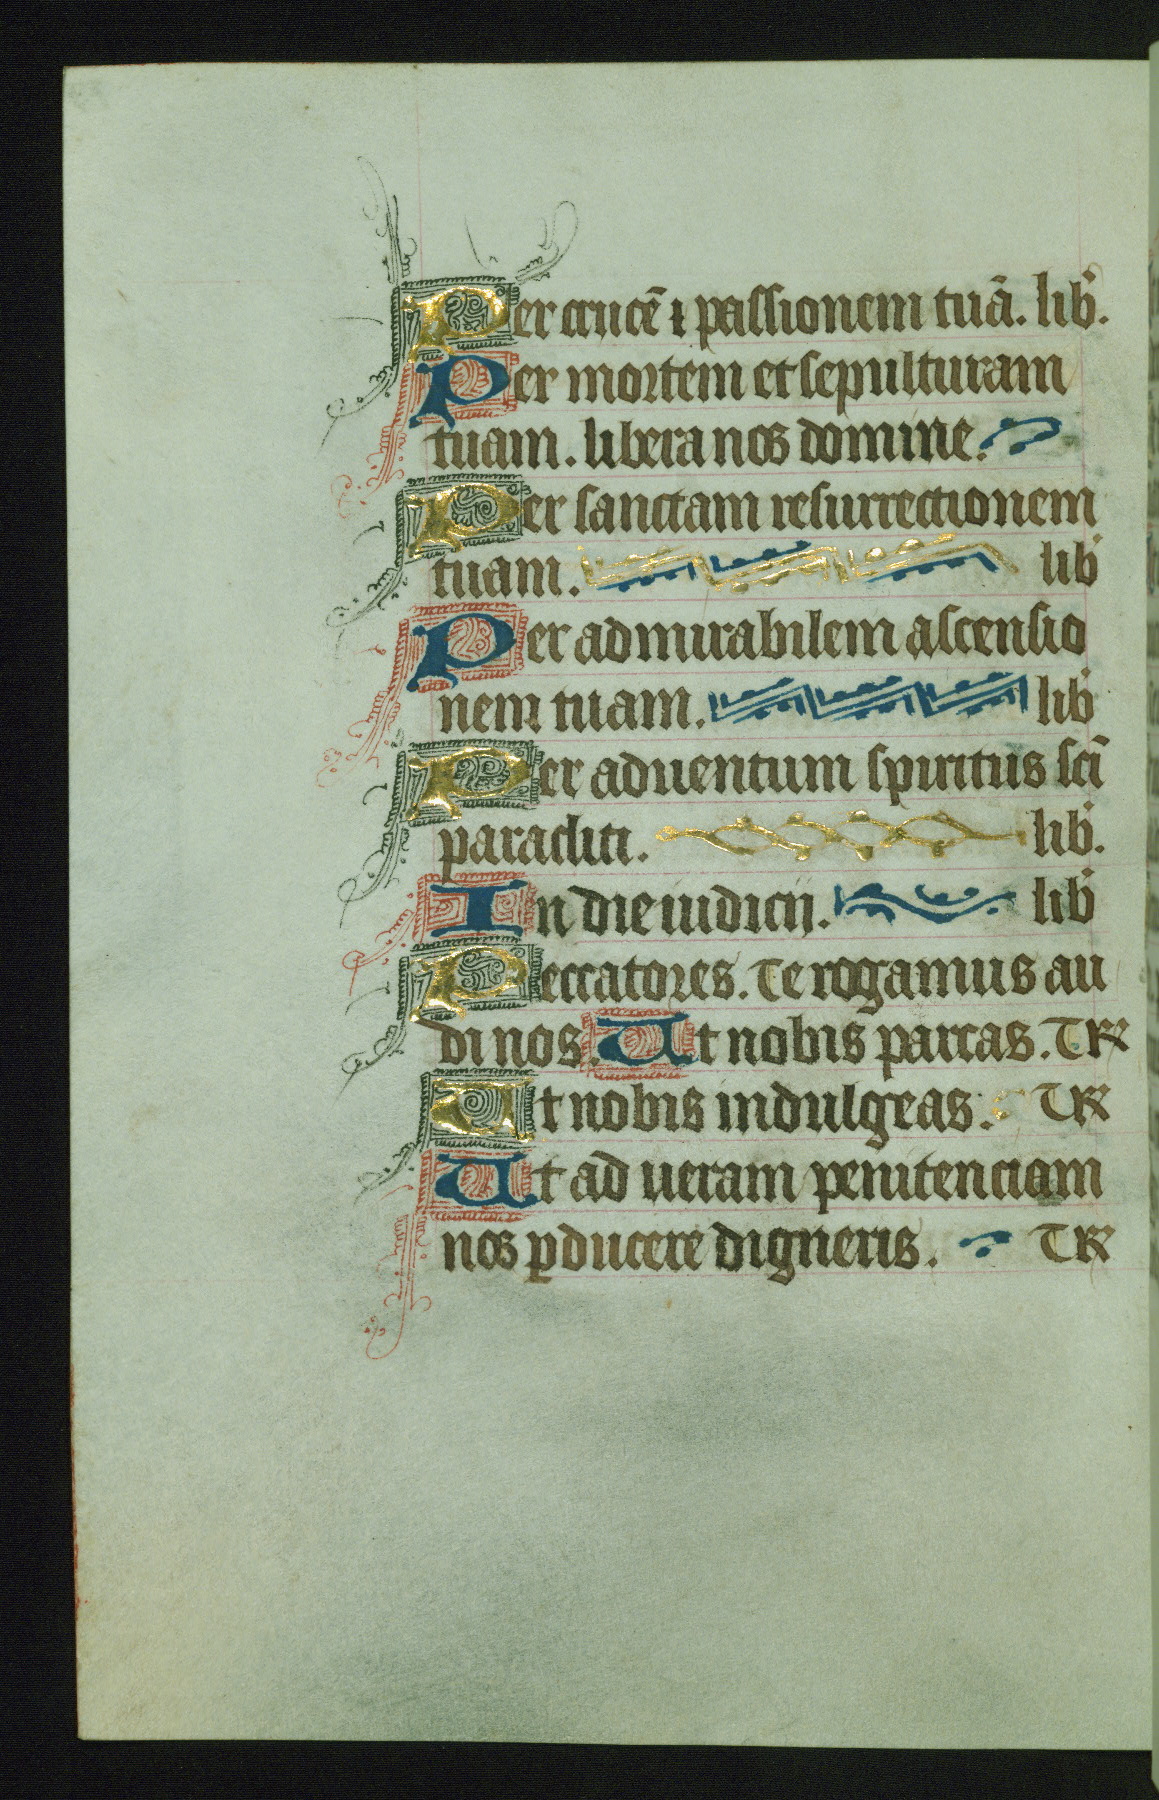 Per crucē ⁊ passionem tuā. lib̄.
Per mortem et sepulturam
tuam. libera nos domine.
Per sanctam resurrectionem
tuam. lib̄
Per admirabilem ascensio
nem tuam. lib̄
Per aduentum spiritus sc̄i
paracliti. lib̄.
In die iudicij. lib̄
Peccatores. Te rogamus au
di nos. Ut nobis parcas. TR
Ut nobis indulgeas. TR
Ut ad ueram penitenciam
nos ꝑducere digneris. TR